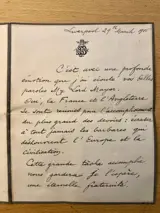 Liverpool 29 Avril 191
C'est avec une profonde
émotion que j'ai écouté vos belles
paroles My Lord Maire.
Oui, la France et l'Angleterre
se sont unies pour l'accomplissement
du plus grand des devoirs: écraser
à tout jamais les barbares qui
déshonorent l'Europe et la
civilisation.
Cette grande tâche accomplie
nous gardera je l'espère,
une éternelle fraternité.